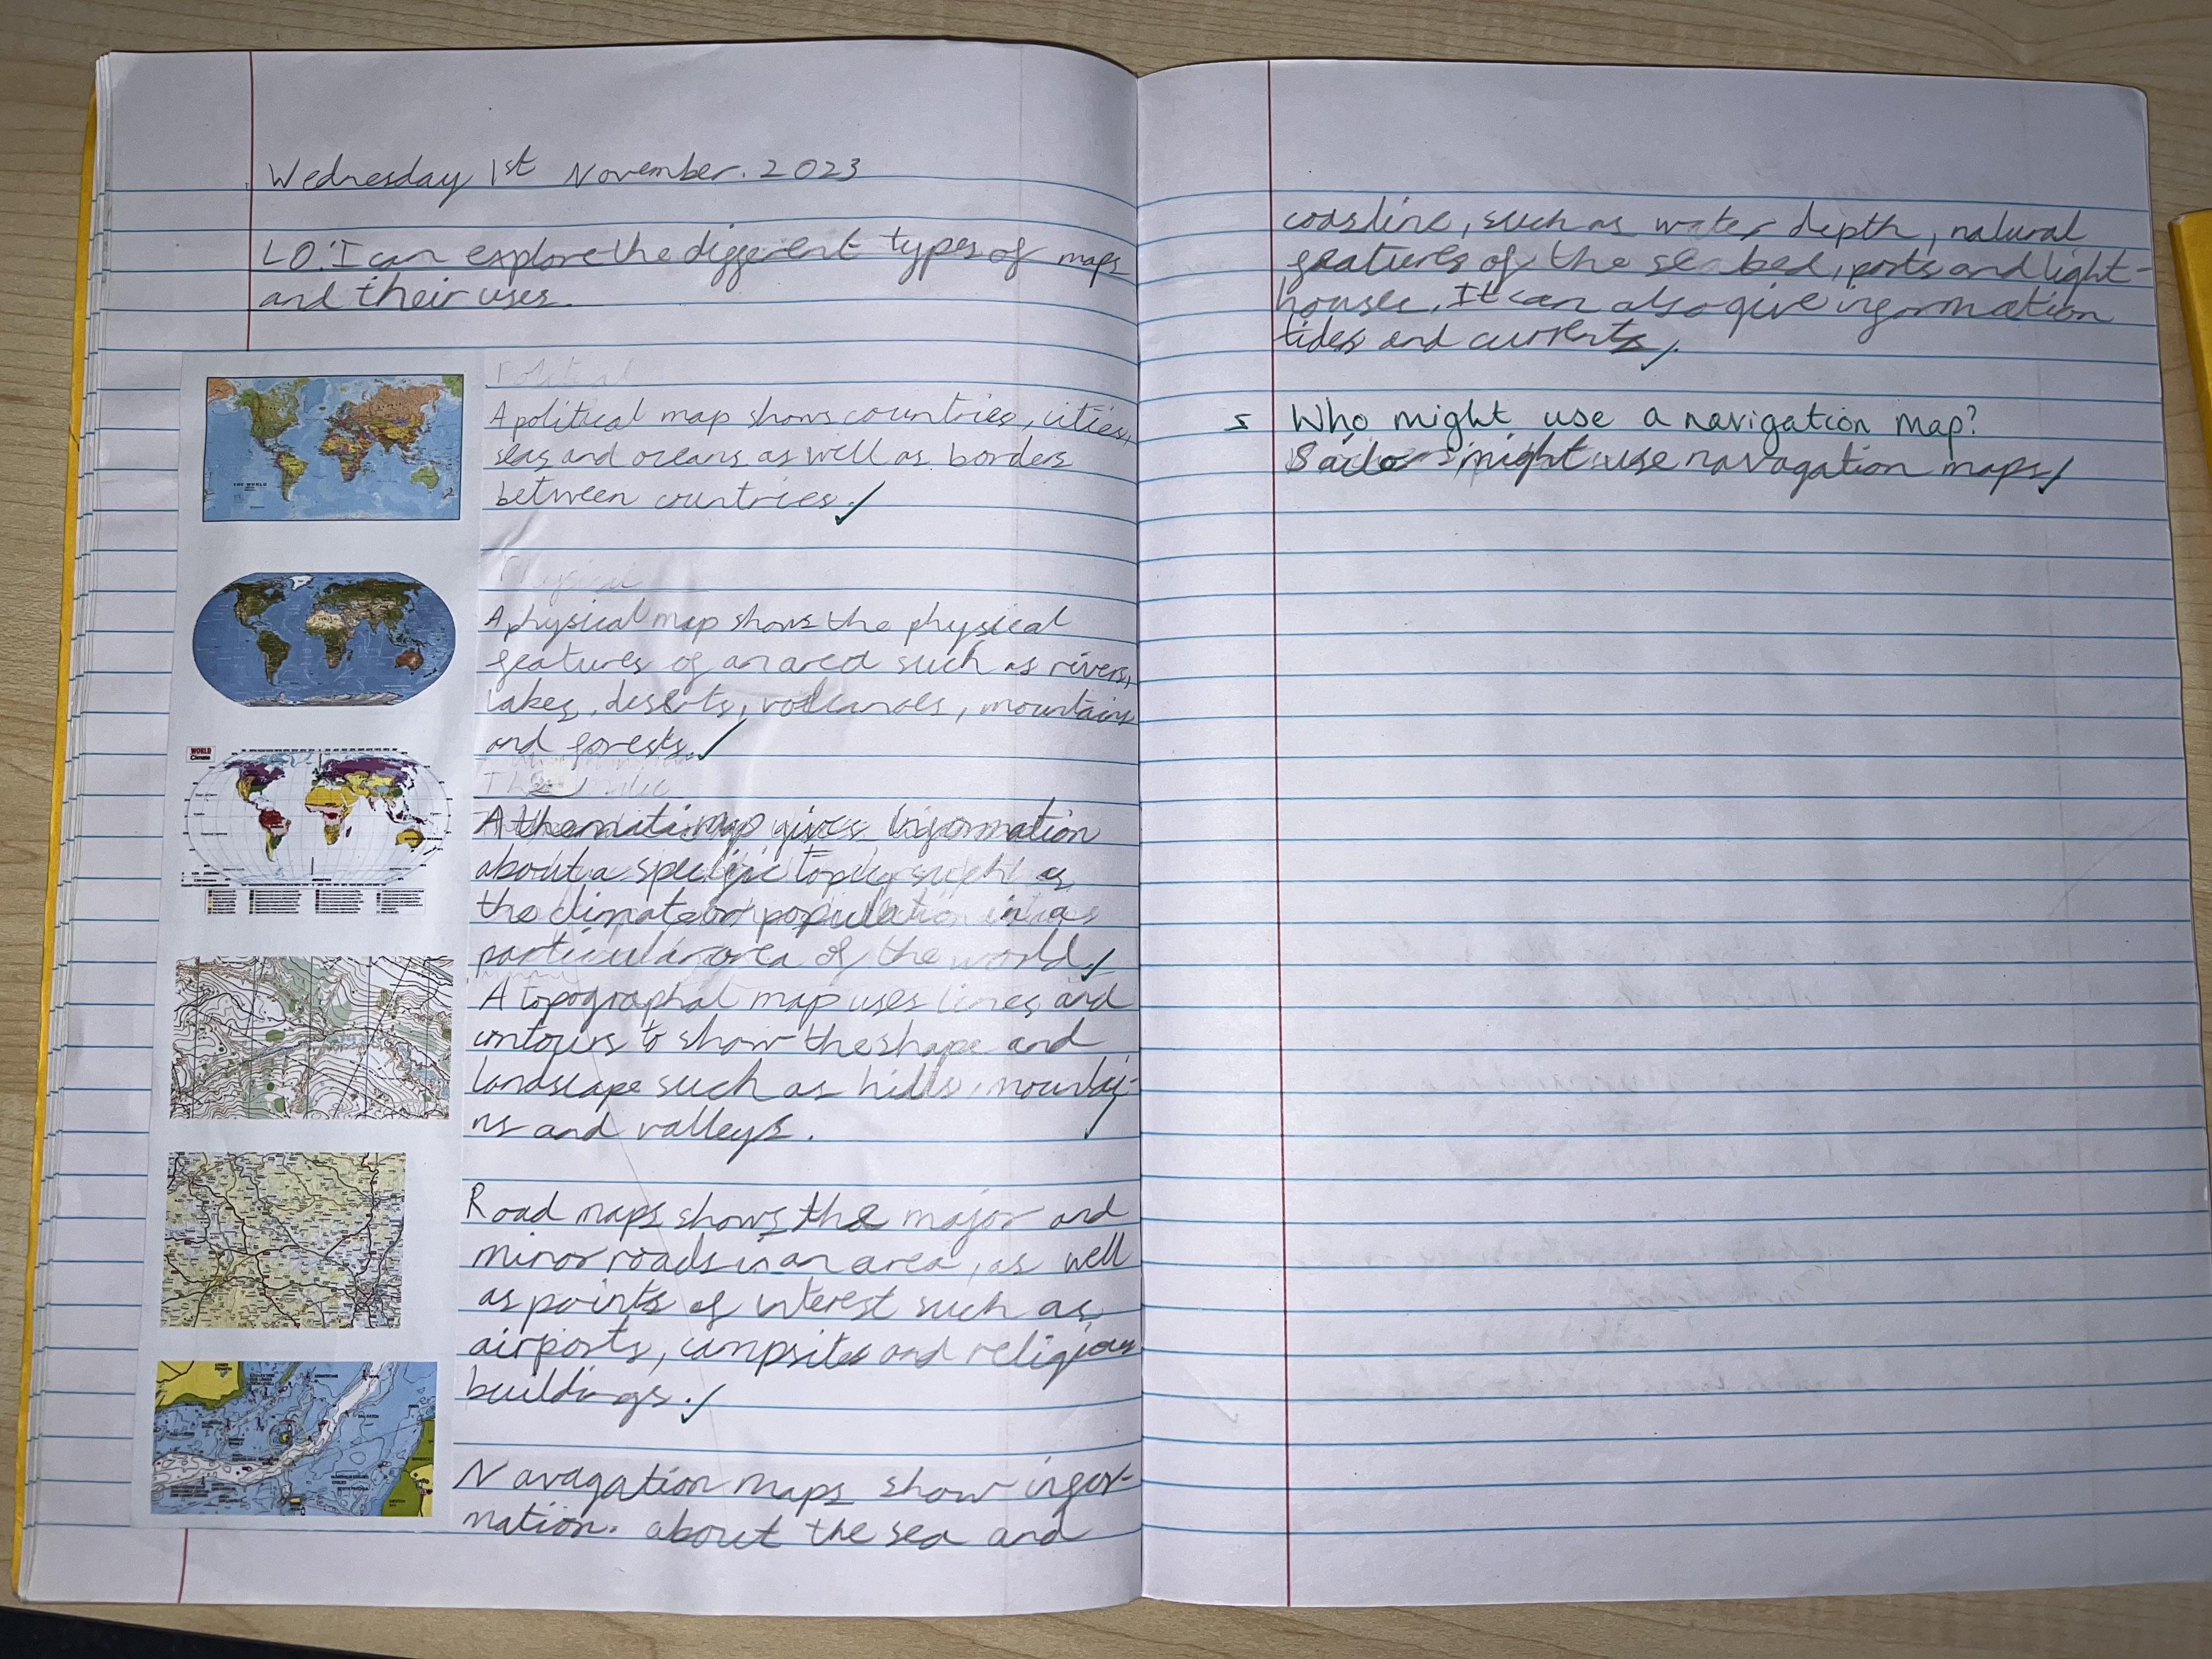 Wednesday 1st November. 2023
LO: I can explore the different types of maps
and their uses.
Political
A political map shows countries, cities,
seas and oceans as well as borders
between countries.
Physical
A physical map shows the physical
features of an area such as rivers,
lakes, deserts, volcanoes, mountains
and forests.
A themati map gives information
about a specific topic such as
the climate or population in a
particular area of the world
A topographal map uses lines and
contours to show the shape and
landscape such as hills, mountai-
ns and valleys.
Road maps shows the major and
minor roads in an area, as well
as points of interest such as
airports, campsites and religious
buildings.
Navagation maps show infor-
mation. about the sea and
THE WORLD
WORLD
Climate
coasline, such as water depth, natural
features of the sea bed, ports and light-
houses. It can also give information
tides and currents.
S Who might use a navigation map?
Sailors might use navagation maps